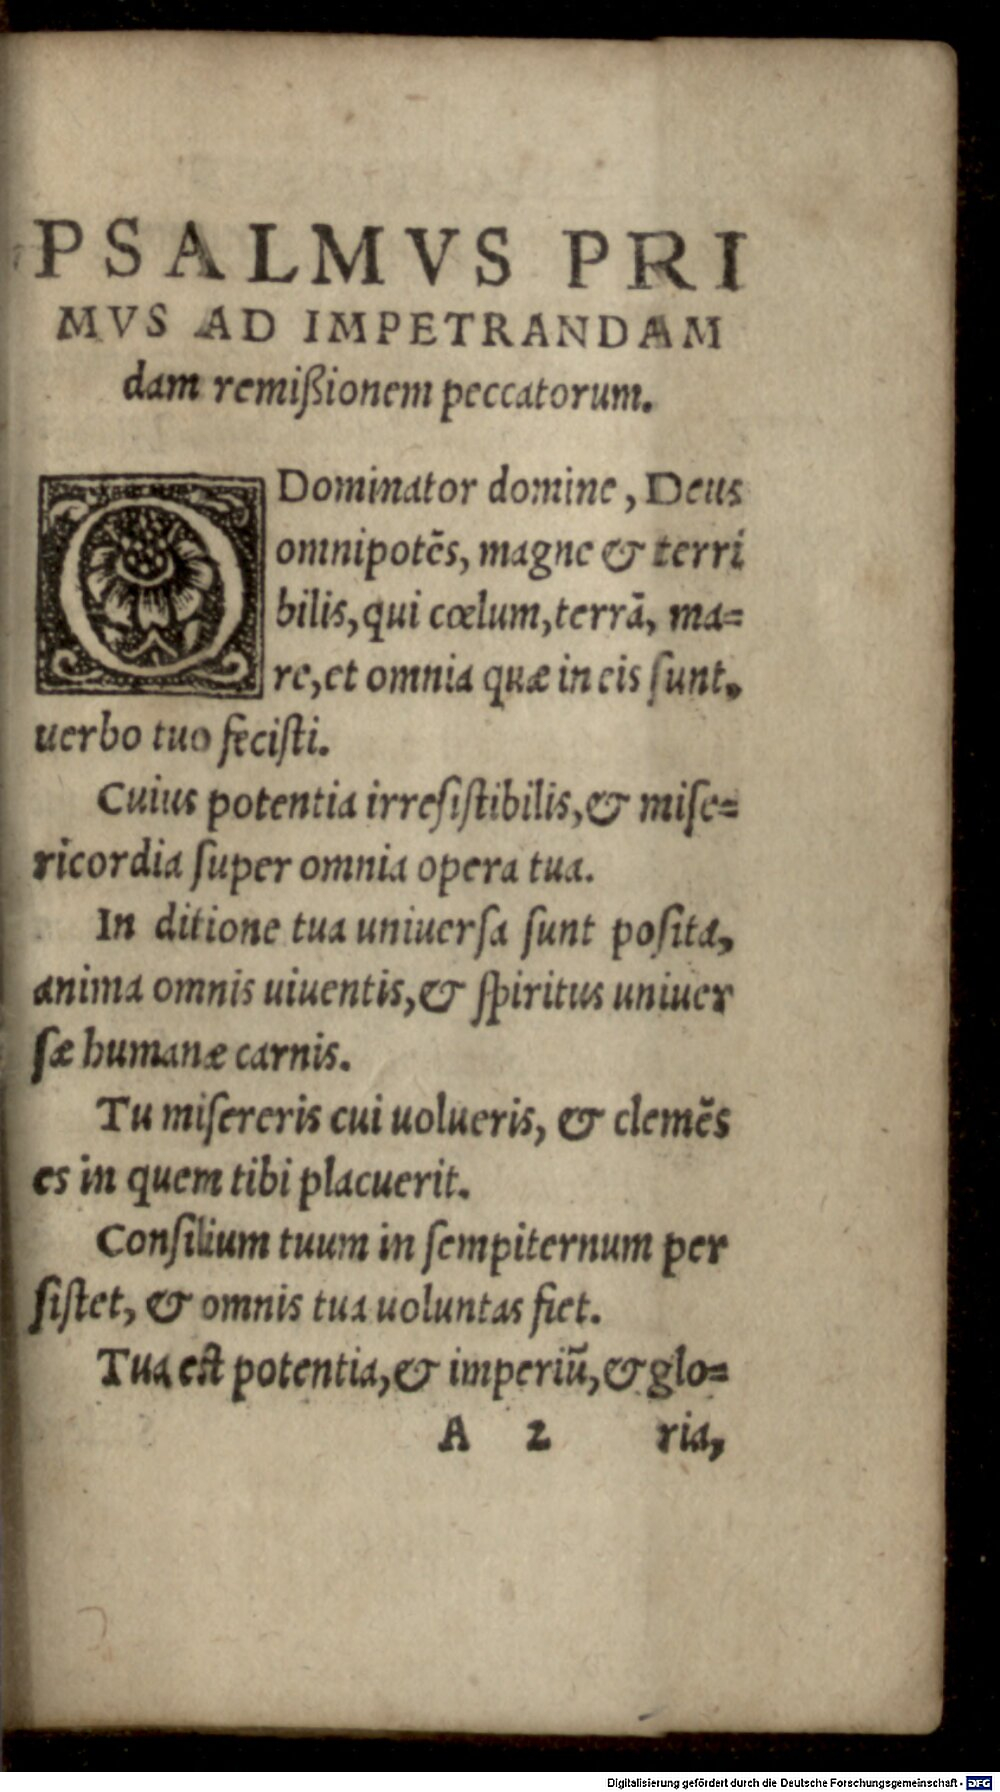 PSALMVS PRI
MVS AD IMPETRANDAM
dam remißionem peccatorum.
O Dominator domine, Deus
omnipotēs, magne & terri
bilis, qui cœlum, terrā, ma=
re, et omnia quæ in eis ſunt,
uerbo tuo feciſti.
Cuius potentia irreſiſtibilis, & miſe=
ricordia ſuper omnia opera tua.
In ditione tua uniuerſa ſunt poſita,
anima omnis uiuentis, & ſpiritus uniuer
ſæ humanæ carnis.
Tu miſereris cui uolueris, & clemēs
es in quem tibi placuerit.
Conſilium tuum in ſempiternum per
ſiſtet, & omnis tua uoluntas fiet.
Tua eſt potentia, & imperiū, & glo=
A 2 ria,
Digitalisierung gefördert durch die Deutsche Forschungsgemeinschaft - DFG